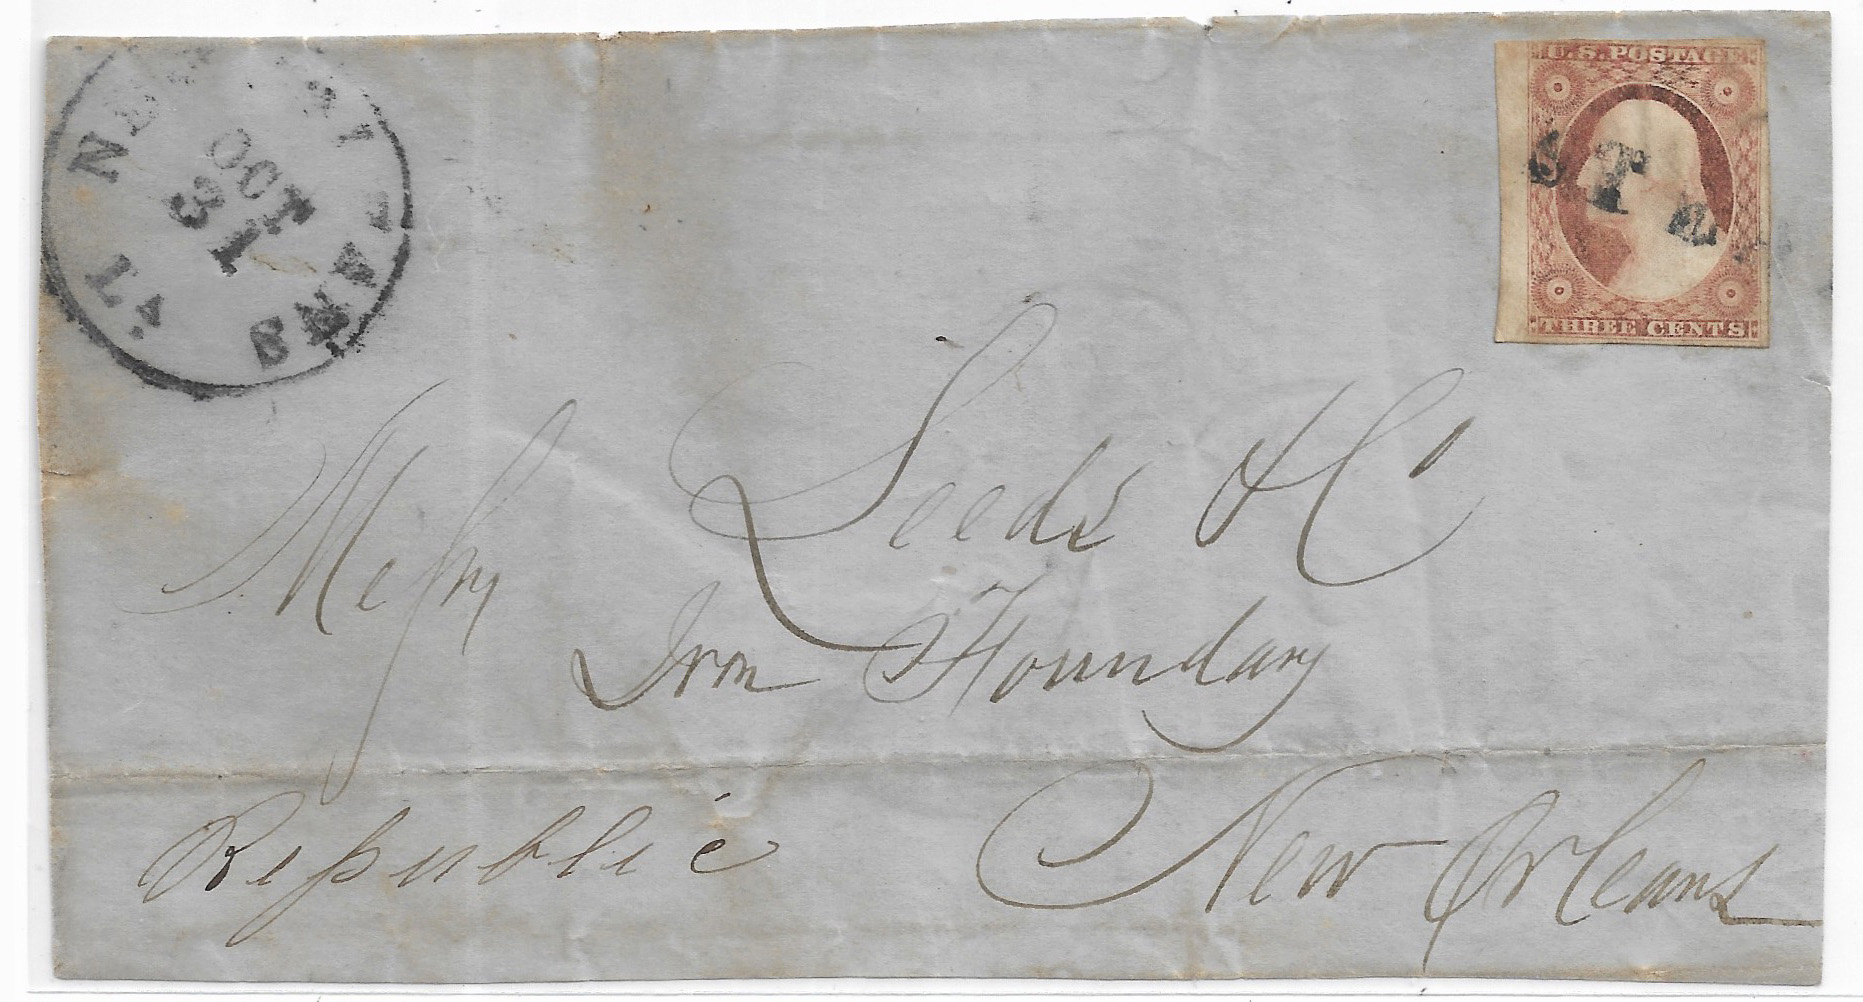 OCT
31
U.S. POSTAGE
THREE CENTS
Messrs Leeds & Co
Iron Foundary
Republic
New Orleans